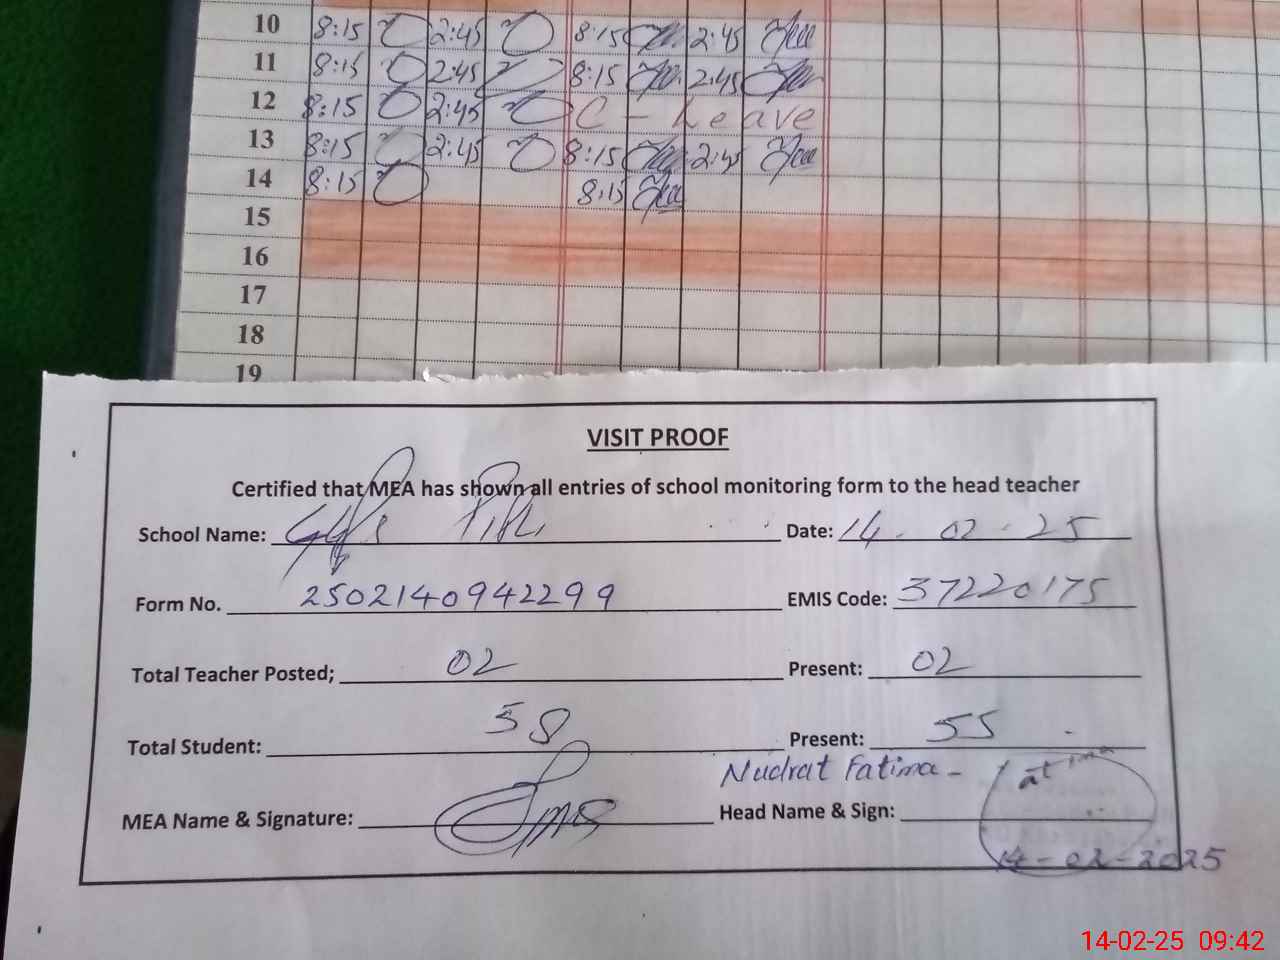 10 8:15 2:45 8:15 2:45
11 8:15 2:45 8:15 2:45
12 8:15 2:45 C - Leave
13 8:15 2:45 8:15 2:45
14 8:15 8:15
15
16
17
18
19
VISIT PROOF
Certified that MEA has shown all entries of school monitoring form to the head teacher
School Name: Date: 14-02-25
Form No. 2502140942299 EMIS Code: 37220175
Total Teacher Posted; 02 Present: 02
Total Student: 58 Present: 55
Nudrat Fatima -
MEA Name & Signature: Head Name & Sign:
14-02-2025
14-02-25 09:42